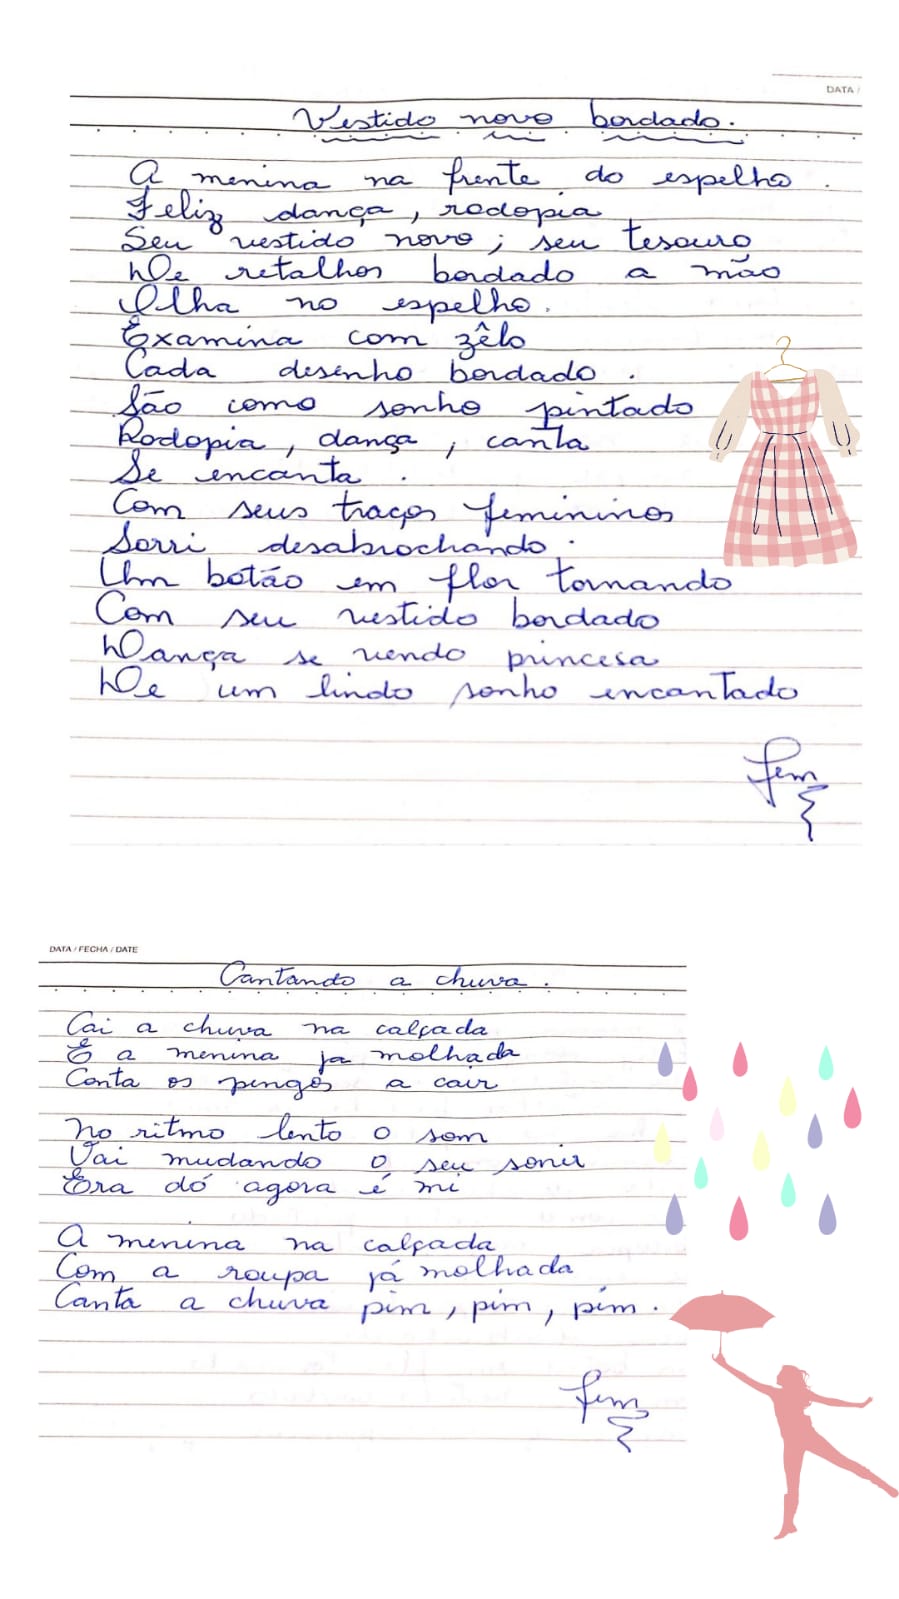 DATA /
Vestido novo bordado.
A menina na frente do espelho.
Feliz dança, rodopia
Seu vestido novo; seu tesouro
De retalhos bordado a mão
Olha no espelho.
Examina com zêlo
Cada desenho bordado.
São como sonho pintado
Rodopia, dança, canta
Se encanta.
Com seus traços femininos
Sorri desabrochando.
Um botão em flor tornando
Com seu vestido bordado
Dança se vendo princesa
De um lindo sonho encantado
DATA / FECHA / DATE
Cantando a chuva.
Cai a chuva na calçada
E a menina ja molhada
Conta os pingos a cair
No ritmo lento o som
Vai mudando o seu sorrir
Era dó agora é mi
A menina na calçada
Com a roupa já molhada
Canta a chuva pim, pim, pim.